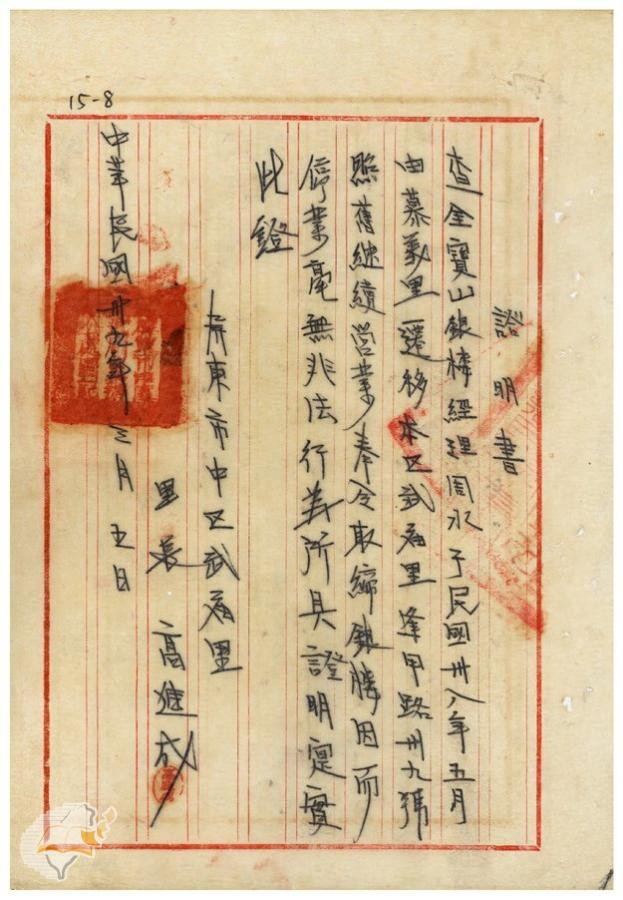 15-8
證明書
查全寶山銀樓經理周水于民國卅八年五月
由慕義里遷移本区武廟里逢甲路卅九號
照舊継續營業奉令取締銀樓因而
停業毫無非法行為所具證明寔實
此證
屏東市中区武廟里
里長 高進成
中華民國卅九年三月五日